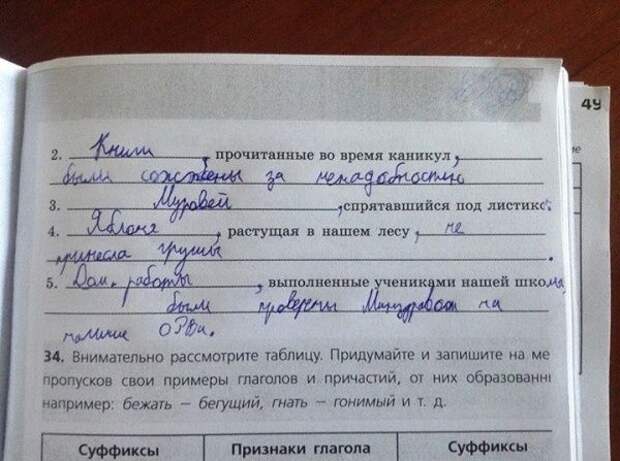 49
2. Книги, прочитанные во время каникул,
были сожжены за ненадобностью
3. Муровей, спрятавшийся под листикс
4. Яблоня, растущая в нашем лесу, не
принесла грушы.
5. Дом. работы, выполненные учениками нашей школы
были проверены Минздравом на
наличие ОРВи.
34. Внимательно рассмотрите таблицу. Придумайте и запишите на ме
пропусков свои примеры глаголов и причастий, от них образованн
например: бежать – бегущий, гнать – гонимый и т. д.
Суффиксы Признаки глагола Суффиксы